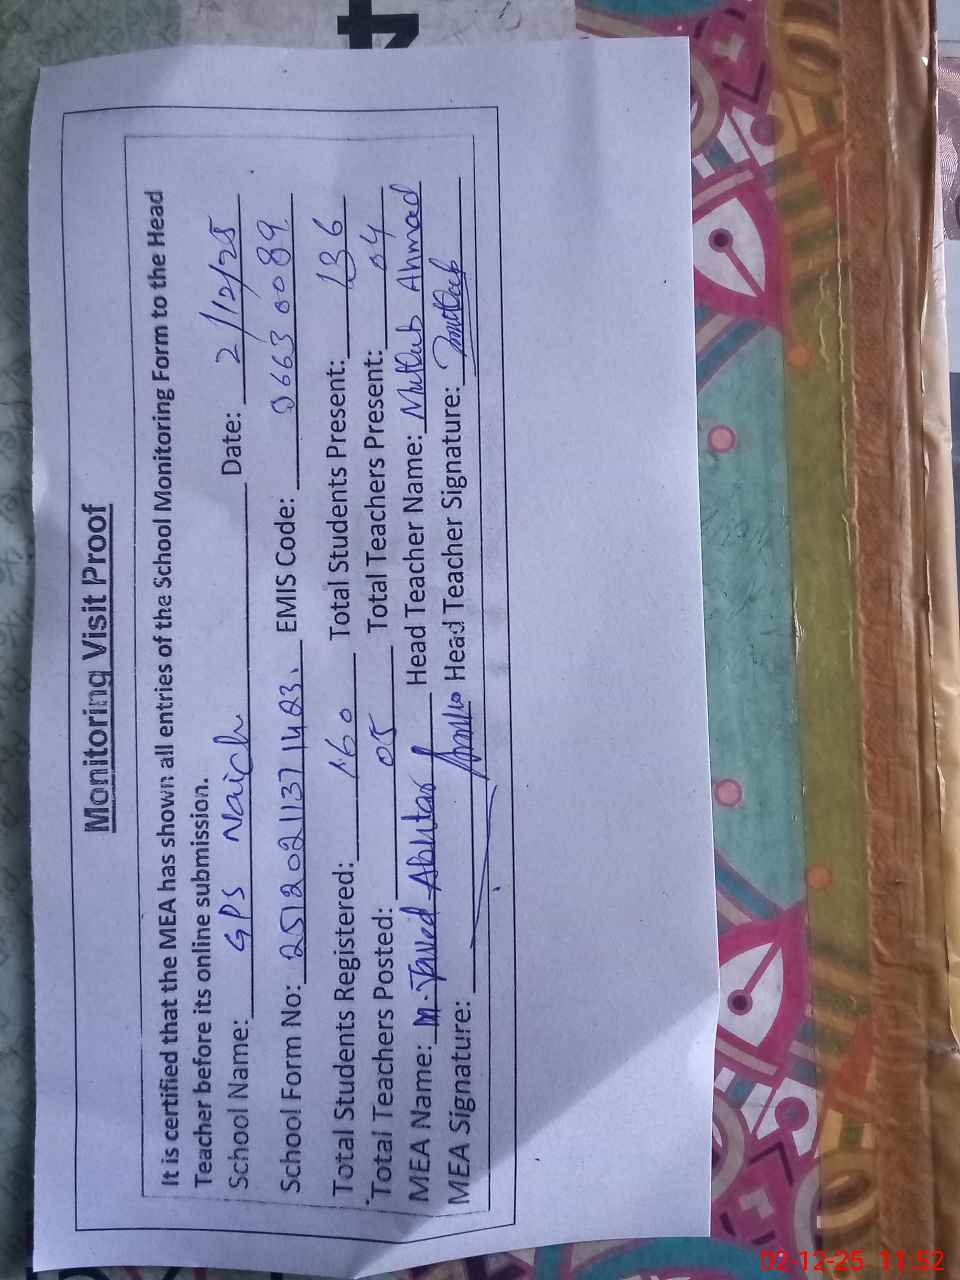 Monitoring Visit Proof
It is certified that the MEA has shown all entries of the School Monitoring Form to the Head
Teacher before its online submission.
School Name: GPS Naich Date: 2/12/25
School Form No: EMIS Code:
Total Students Registered: 160 Total Students Present: 136
Total Teachers Posted: 05 Total Teachers Present: 04
MEA Name: M. Javed Head Teacher Name: Ahmad
MEA Signature: Head Teacher Signature:
02-12-25 11:52